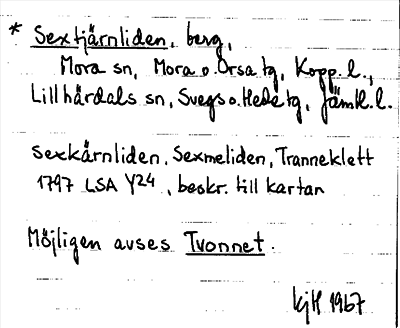 * Sextjärnliden, berg,
Mora sn, Mora o. Orsa tg, Kopp. l.,
Lillhärdals sn, Svegs o. Hede tg, Jämtl. l.
Sexkärnliden, Sexmeliden, Tranneklett
1797 LSA Y24, beskr. till kartan
Möjligen avses Tvonnet.
KjH 1967